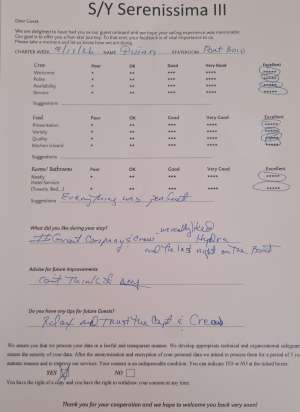 S/Y Serenissima III
Dear Guest
We are delighted to have had you as our guest onboard and we hope your sailing experience was memorable.
Our goal is to offer you a five star journey. To that end, your feedback is of vital importance to us.
Please take a moment and let us know how we are doing.
CHARTER WEEK: NAME STATEROOM:
Crew Poor OK Good Very Good Excellent
Welcome * ** *** **** *****
Polite * ** *** **** *****
Availability * ** *** **** *****
Service * ** *** **** *****
Suggestions
Food Poor OK Good Very Good Excellent
Presentation * ** *** **** *****
Variety * ** *** **** *****
Quality * ** *** **** *****
Kitchen Onward * ** *** **** *****
Suggestions
Rooms/ Bathrooms Poor OK Good Very Good Excellent
Ready * ** *** **** *****
Hotel Service
(Towels, Bed...) * ** *** **** *****
Suggestions Everything was perfect
What did you like during your stay?
we really liked
Great Company & Crew Hydra
and the last night on the Boat
Advise for future improvements
Cant Think of any
Do you have any tips for future Guests?
Relax and Trust the Capt & Crew
We assure you that we process your data in a lawful and transparent manner. We develop appropriate technical and organizational
ensure the security of your data. After the anonymization and encryption of your personal data we aim to process them for a period of 5
reasons and to improve our services. Your consent is an indispensable condition. You can indicate YES or NO at the ticked boxes.
YES NO
You have the right of a copy and you have the right to withdraw your consent at any time.
Thank you for your cooperation and we hope to welcome you back very soon!